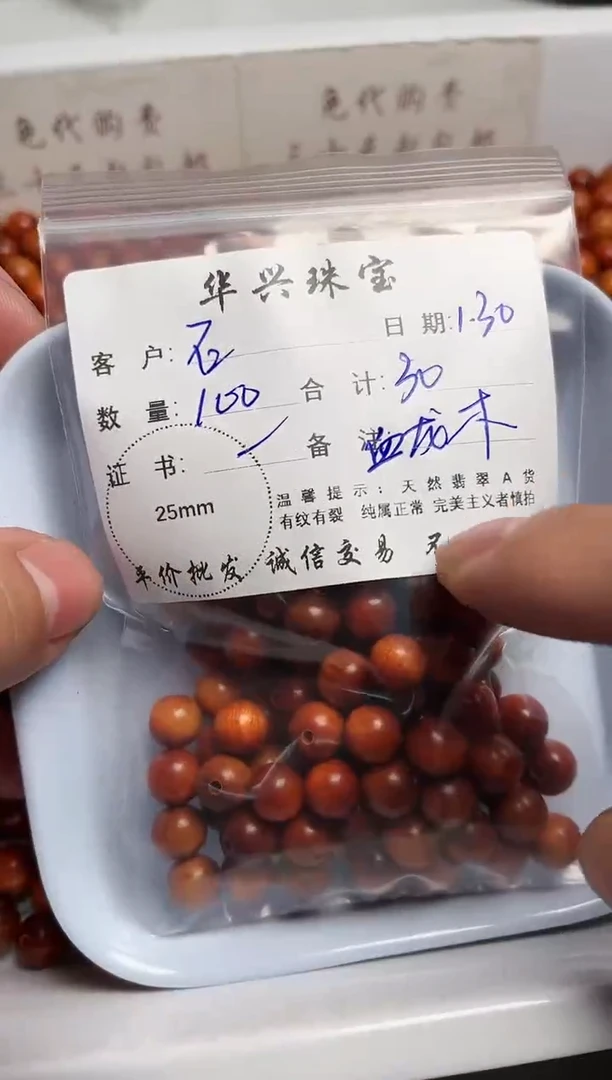 色代购费 色代购费
华兴珠宝
客户: 石 日期: 1.30
数量: 100 合计: 30
证书: 备 血龙木
25mm
温馨提示: 天然翡翠A货
有纹有裂 纯属正常 完美主义者慎拍
平价批发 诚信交易